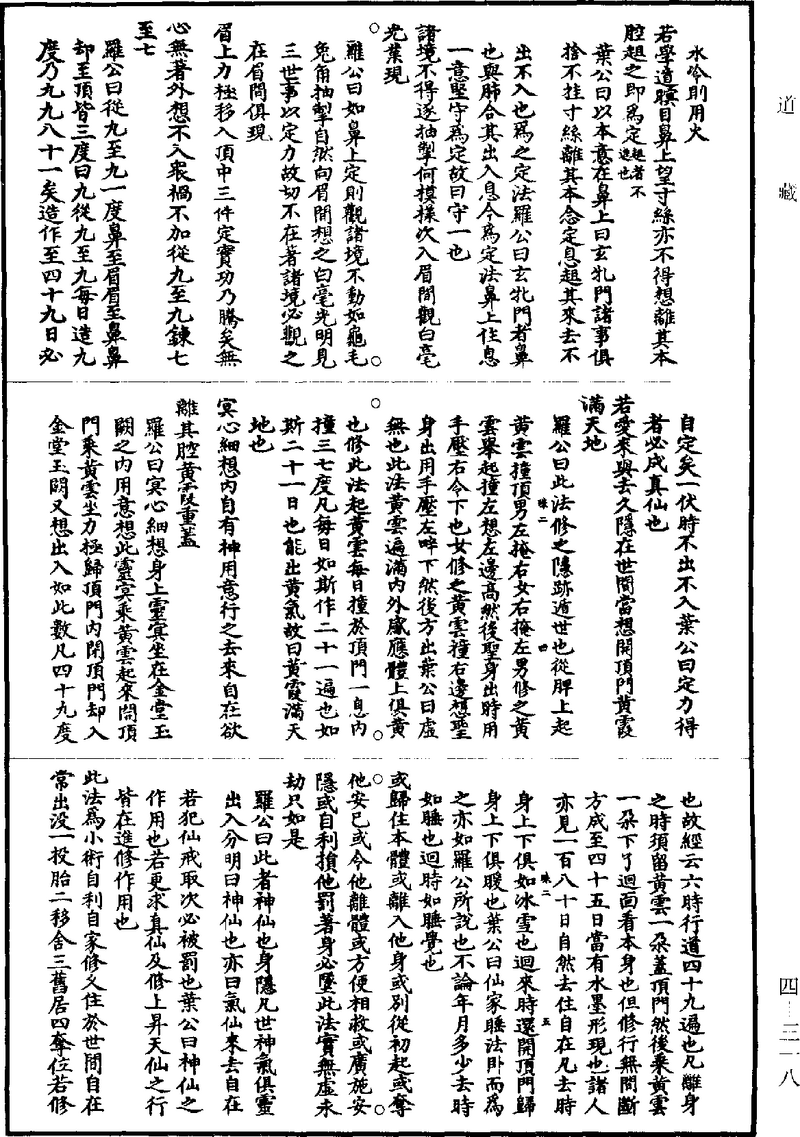 道藏
水冷則用火
若學道瞑目鼻上望寸絲亦不得想離其本
腔超之即爲定超者不造也
葉公曰以本意在鼻上曰玄牝門諸事俱
捨不挂寸絲離其本念定息超其來去不
出不入也爲之定法羅公曰玄牝門者鼻
也與肺合其出入息令爲定法鼻上住息
一意堅守爲定故曰守一也
諸境不得逐抽掣何模樣次入眉間觀白毫
光業現
羅公曰如鼻上定則觀諸境不動如龜毛
兔角抽掣自然向眉間想之白毫光明見
三世事以定力故切不在著諸境必觀之
在眉間俱現
眉上力極移入頂中三件定實功乃騰矣無
心無著外想不入衆禍不加從九至九鍊七
至七
羅公曰從九至九一度鼻至眉眉至鼻鼻
却至頂皆三度曰九從九至九每日造九
度乃九九八十一矣造作至四十九日必
自定矣一伏時不出不入葉公曰定力得
者必成真仙也
若愛來與去久隱在世間當想開頂門黄霞
滿天地
羅公曰此法修之隱跡遁世也從脾上起
黄雲撞頂男左掩右女右掩左男修之黄
雲舉起撞左想左邊高然後聖身出時用
手壓右令下也女修之黄雲撞右邊想聖
身出用手壓左啐下然後方出葉公曰虛
無也此法黄雲遍滿内外感應體上俱黄
也修此法起黄雲每日撞於頂門一息内
撞三七度凡每日如斯作二十一遍也如
斯二十一日也能出黄氣故曰黄霞滿天
地也
冥心細想内自有神用意行之去來自在欲
離其腔黄霞重蓋
羅公曰冥心細想身上靈冥坐在金堂玉
闕之内用意想此靈冥乘黄雲起來開頂
門乘黄雲坐力極歸頂門内閉頂門却入
金堂玉闕又想出入如此數凡四十九度
也故經云六時行道四十九遍也凡離身
之時須留黄雲一朵蓋頂門然後乘黄雲
一朵下了迴面看本身也但修行無間斷
方成至四十五日當有水墨形現也諸人
亦見一百八十日自然去住自在凡去時
身上下俱如冰雪也迴來時還開頂門歸
身上下俱暖也葉公曰仙家睡法卧而爲
之亦如羅公所說也不論年月多少去時
如睡也迴時如睡覺也
或歸住本體或離入他身或別從初起或奪
他安已或令他離體或方便相救或廣施安
隱或自利損他罰著身必墜此法實無虛永
劫只如是
羅公曰此者神仙也身隱凡世神氣俱靈
出入分明曰神仙也亦曰氣仙來去自在
若犯仙戒取次必被罰也葉公曰神仙之
作用也若更求真仙及修上昇天仙之行
皆在進修作用也
此法爲小術自利自家修久住於世間自在
常出没一投胎二移舍三舊居四奪位若修
四—三一八